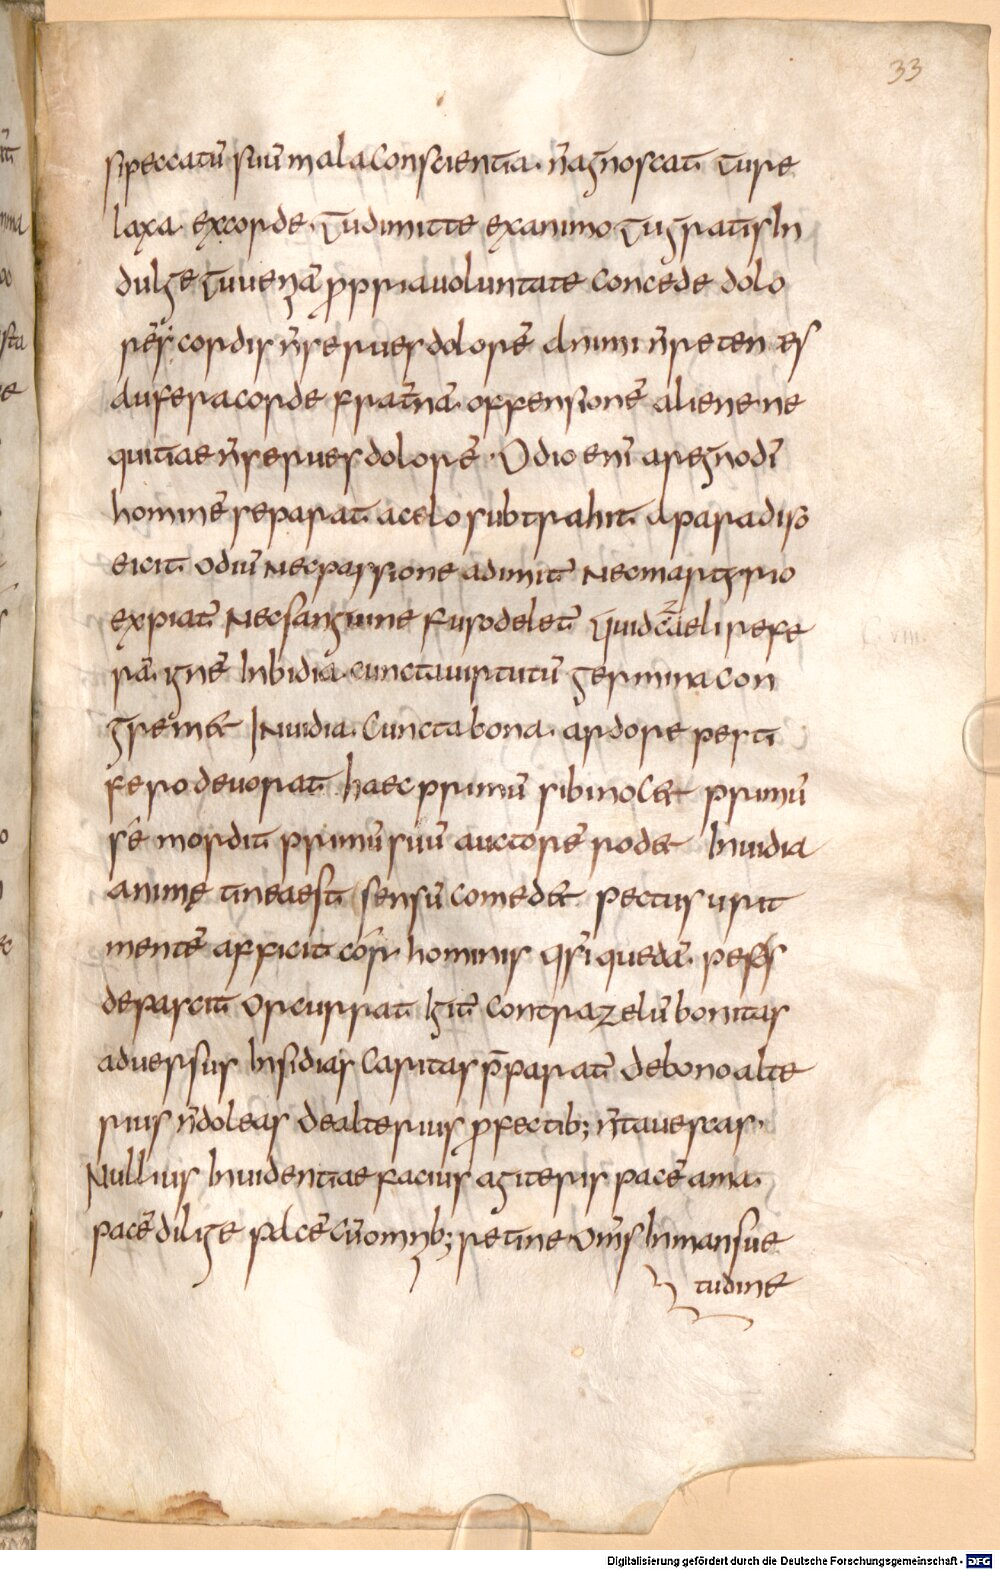 33
si peccatū suū mala conscientia. n̄ agnoscat tu re
laxa. ex corde. tu dimitte ex animo tu gratis In
dulge tu ueniā propria uoluntate concede dolo
rēs cordis n̄ serues dolorē animi n̄ reten es
aufer a corde frat̄nā. offensionē aliene ne
quitiae n̄ serues dolorē. Odio enī a regno dī
hominē separat a celo subtrahit a paradiso
eicit odiū nec passione adimit nec martyrio
expiat̄ nec sanguine fuso delet̄ quid
rā. ignē Inbidia. cuncta uirtutū germina con
gremet Inuidia. Cuncta bona. ardore pesti
fero deuorat haec primū sibi nocet primū
sē mordit primū suū auctorē rodet Inuidia
animę tinea est sensū comedet pectus urit
mentē afficit cor hominis qsi quedā. pestis
depascit Occurrat Igit̄ contra zelū bonitas
aduersus Insidias Caritas p̄parat̄ De bono alte
rius n̄ doleas De alterius profectib; n̄ tauescas.
Nullius Inuidentiae facius agiteris pacē ama.
pacē dilige pacē cū omīb; retine Om̄s In mansue
tudine
Digitalisierung gefördert durch die Deutsche Forschungsgemeinschaft - DFG